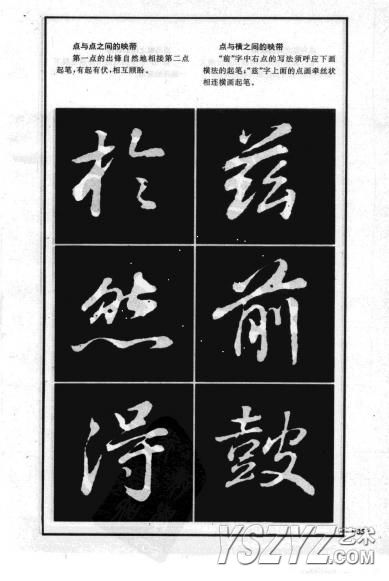 点与点之间的映带
第一点的出锋自然地相接第二点
起笔，有起有伏，相互顾盼。
点与横之间的映带
“前”字中右点的写法须呼应下画
横法的起笔；“兹”字上面的点画牵丝状
相连横画起笔。
於 兹
然 前
得 鼓
35
YSZYZ艺术
.COM